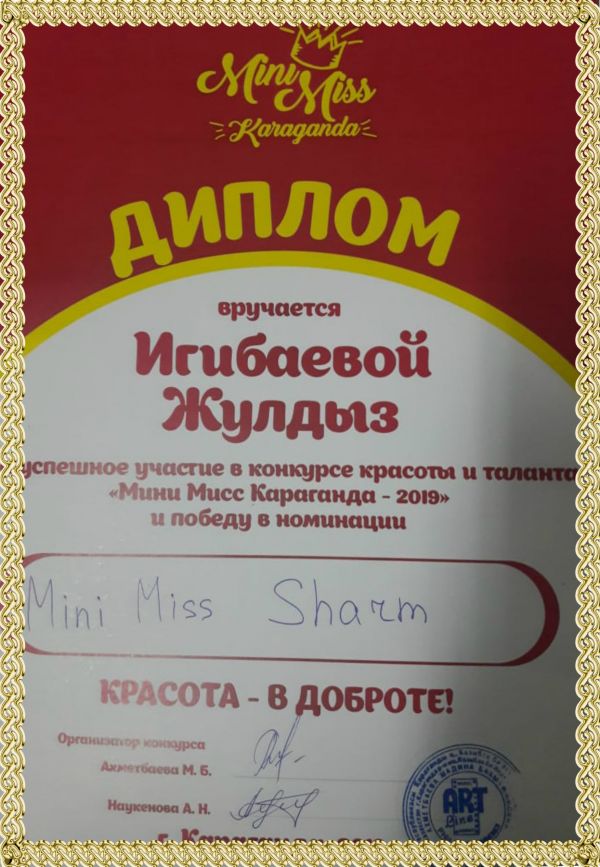 Mini
Miss
Karaganda
ДИПЛОМ
вручается
Игибаевой
Жулдыз
успешное участие в конкурсе красоты и таланта
«Мини Мисс Караганда - 2019»
и победу в номинации
Mini Miss Sharm
КРАСОТА - В ДОБРОТЕ!
Организатор конкурса
Ахметбаева М. Б.
Наукенова А. Н.
ART
г. Караганда